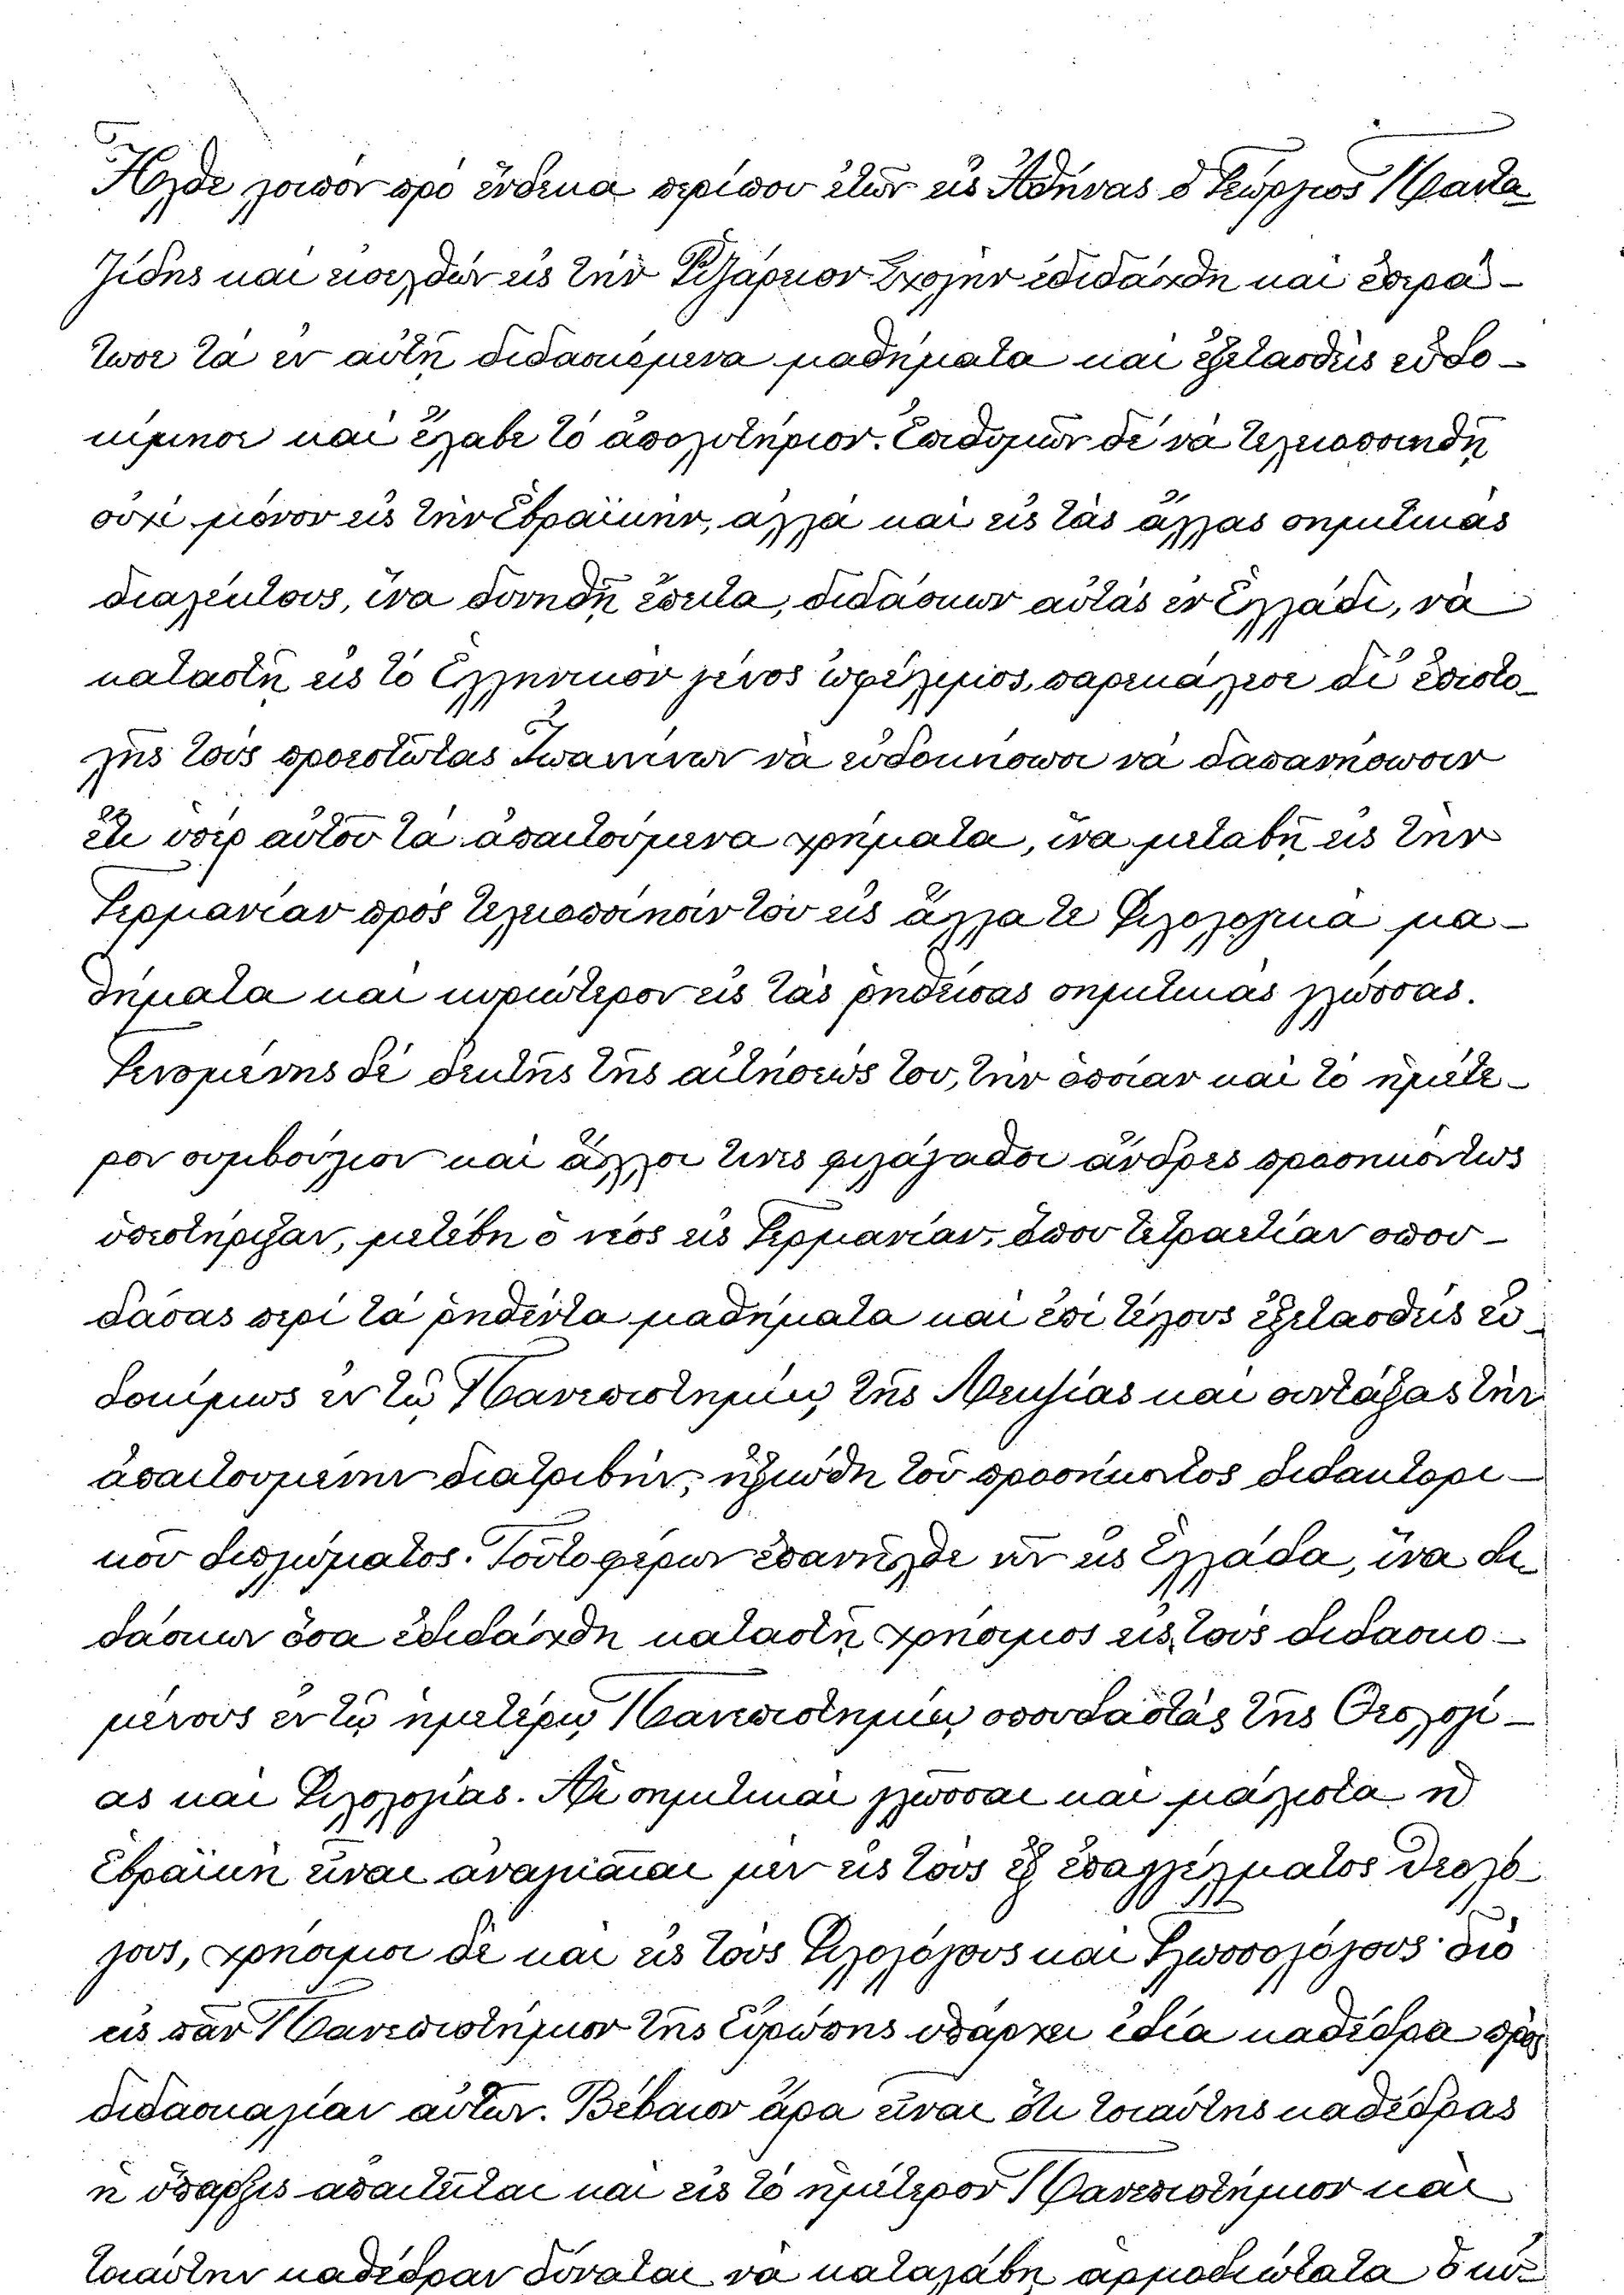 Ἦλθε λοιπὸν πρὸ ἕνδεκα περίπου ἐτῶν εἰς Ἀθήνας ὁ Γεώργιος Παντα-
ζίδης καὶ εἰσελθὼν εἰς τὴν Ῥιζάρειον Σχολὴν ἐδιδάχθη καὶ ἐπερά-
τωσε τὰ ἐν αὐτῇ διδασκόμενα μαθήματα καὶ ἐξετασθεὶς εὐδο-
κίμησε καὶ ἔλαβε τὸ ἀπολυτήριον. Ἐπιθυμῶν δὲ νὰ τελειοποιηθῇ
οὐχὶ μόνον εἰς τὴν Ἑβραϊκήν, ἀλλὰ καὶ εἰς τὰς ἄλλας σημιτικὰς
διαλέκτους, ἵνα δυνηθῇ ἔπειτα, διδάσκων αὐτὰς ἐν Ἑλλάδι, νὰ
καταστῇ εἰς τὸ Ἑλληνικὸν γένος ὠφέλιμος, παρεκάλεσε δι' ἐπιστο-
λῆς τοὺς προεστῶτας Ἰωαννίνων νὰ εὐδοκήσωσι νὰ δαπανήσωσιν
ἔτι ὑπὲρ αὐτοῦ τὰ ἀπαιτούμενα χρήματα, ἵνα μεταβῇ εἰς τὴν
Γερμανίαν πρὸς τελειοποίησίν του εἰς ἄλλα τε Φιλολογικὰ μα-
θήματα καὶ κυριώτερον εἰς τὰς ῥηθείσας σημιτικὰς γλώσσας.
Γενομένης δὲ δεκτῆς τῆς αἰτήσεώς του, τὴν ὁποίαν καὶ τὸ ἡμέτε-
ρον συμβούλιον καὶ ἄλλοι τινὲς φιλάγαθοι ἄνδρες προσηκόντως
ὑπεστήριξαν, μετέβη ὁ νέος εἰς Γερμανίαν, ὅπου τετραετίαν σπου-
δάσας περὶ τὰ ῥηθέντα μαθήματα καὶ ἐπὶ τέλους ἐξετασθεὶς εὐ-
δοκίμως ἐν τῷ Πανεπιστημίῳ τῆς Λειψίας καὶ συντάξας τὴν
ἀπαιτουμένην διατριβήν, ἠξιώθη τοῦ προσήκοντος διδακτορι-
κοῦ διπλώματος. Τοῦτο φέρων ἐπανῆλθε νῦν εἰς Ἑλλάδα, ἵνα δι-
δάσκων ὅσα ἐδιδάχθη καταστῇ χρήσιμος εἰς τοὺς διδασκο-
μένους ἐν τῷ ἡμετέρῳ Πανεπιστημίῳ σπουδαστὰς τῆς Θεολογί-
ας καὶ Φιλολογίας. Αἱ σημιτικαὶ γλῶσσαι καὶ μάλιστα ἡ
Ἑβραϊκὴ εἶναι ἀναγκαῖαι μὲν εἰς τοὺς ἐξ ἐπαγγέλματος θεολό-
γους, χρήσιμοι δὲ καὶ εἰς τοὺς Φιλολόγους καὶ Γλωσσολόγους· διὸ
εἰς πᾶν Πανεπιστήμιον τῆς Εὐρώπης ὑπάρχει ἰδία καθέδρα πρὸς
διδασκαλίαν αὐτῶν. Βέβαιον ἄρα εἶναι ὅτι τοιαύτης καθέδρας
ἡ ὕπαρξις ἀπαιτεῖται καὶ εἰς τὸ ἡμέτερον Πανεπιστήμιον καὶ
τοιαύτην καθέδραν δύναται νὰ καταλάβῃ ἁρμοδιώτατα ὁ κύ-